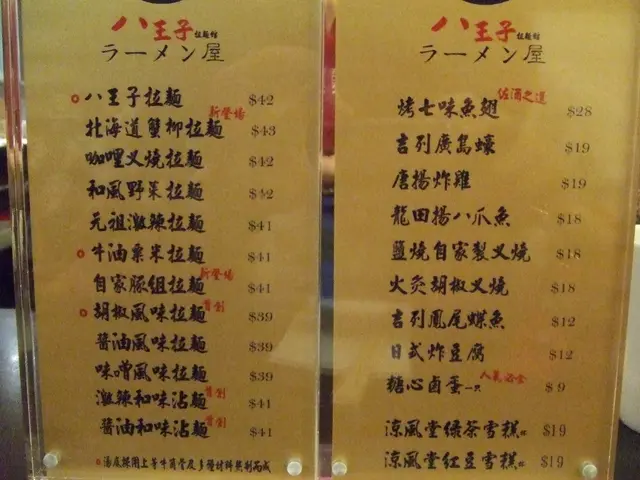 八王子拉麵館
ラーメン屋
八王子拉麵 $42
北海道蟹柳拉麵 新登場 $43
咖哩叉燒拉麵 $42
和風野菜拉麵 $42
元祖激辣拉麵 $41
牛油粟米拉麵 $41
自家豚組拉麵 新登場 $41
胡椒風味拉麵 首創 $39
醬油風味拉麵 $39
味噌風味拉麵 $39
激辣和味沾麵 首創 $41
醬油和味沾麵 首創 $41
湯底採用上等牛肩骨及多種材料熬制而成
八王子拉麵館
ラーメン屋
烤七味魚翅 佐酒之選 $28
吉列廣島蠔 $19
唐揚炸雞 $19
龍田揚八爪魚 $18
鹽燒自家製叉燒 $18
火灸胡椒叉燒 $18
吉列鳳尾蝶魚 $12
日式炸豆腐 $12
糖心鹵蛋一只 $9
涼風堂綠茶雪糕 $19
涼風堂紅豆雪糕 $19